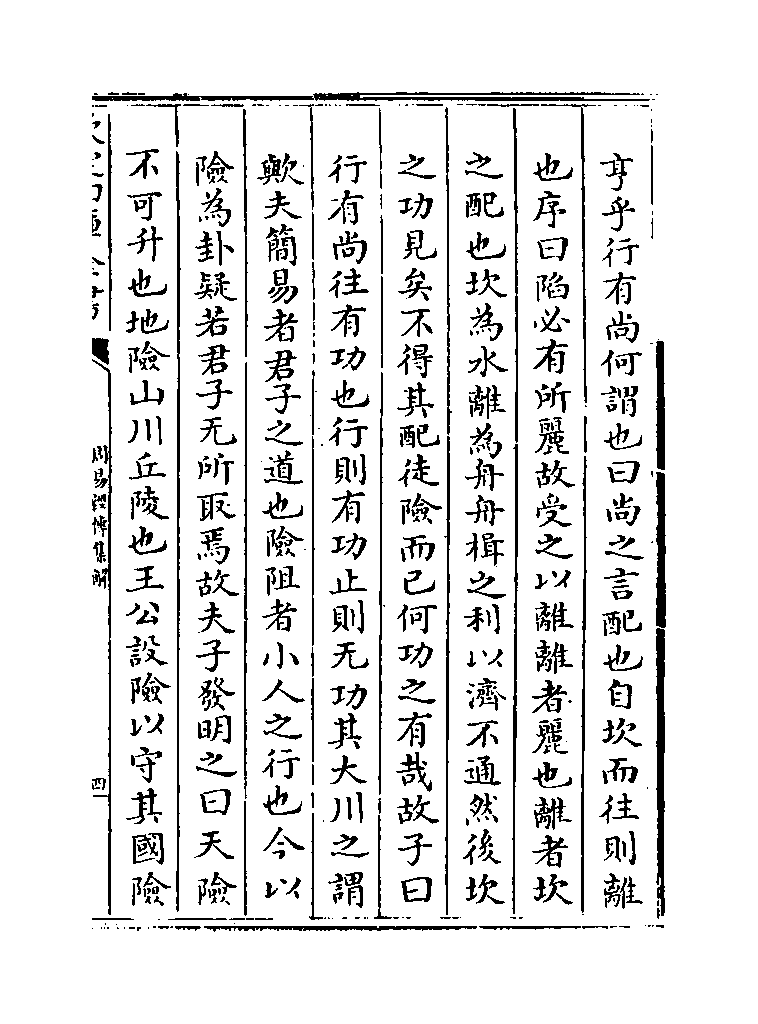 亨乎行有尚何謂也曰尚之言配也自坎而往則離
也序曰陷必有所麗故受之以離離者麗也離者坎
之配也坎為水離為舟舟楫之利以濟不通然後坎
之功見矣不得其配徒險而已何功之有哉故子曰
行有尚往有功也行則有功止則无功其大川之謂
歟夫簡易者君子之道也險阻者小人之行也今以
險為卦疑若君子无所取焉故夫子發明之曰天險
不可升也地險山川丘陵也王公設險以守其國險
周易經傳集解
四